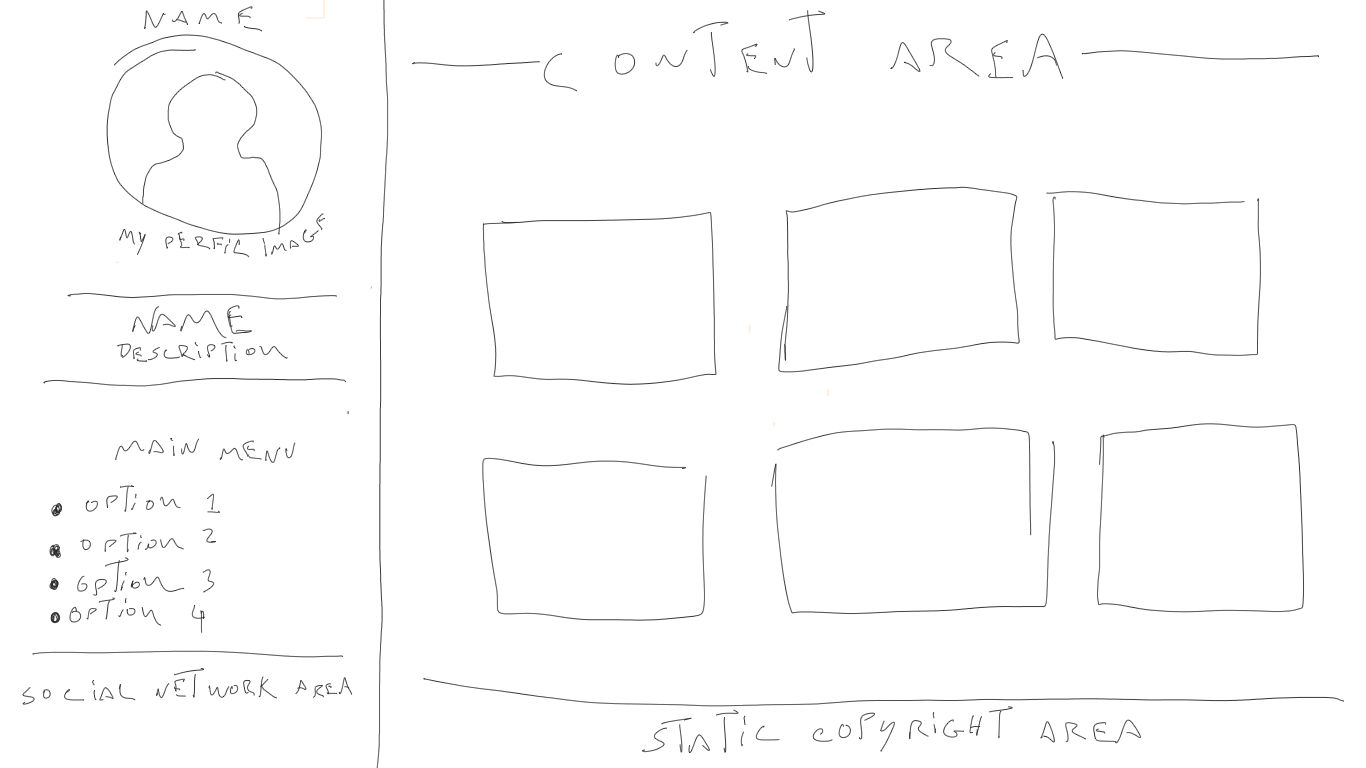 NAME
MY PERFIL IMAGE
NAME
DESCRIPTION
MAIN MENU
• OPTION 1
• OPTION 2
• OPTION 3
• OPTION 4
SOCIAL NETWORK AREA
CONTENT AREA
STATIC COPYRIGHT AREA